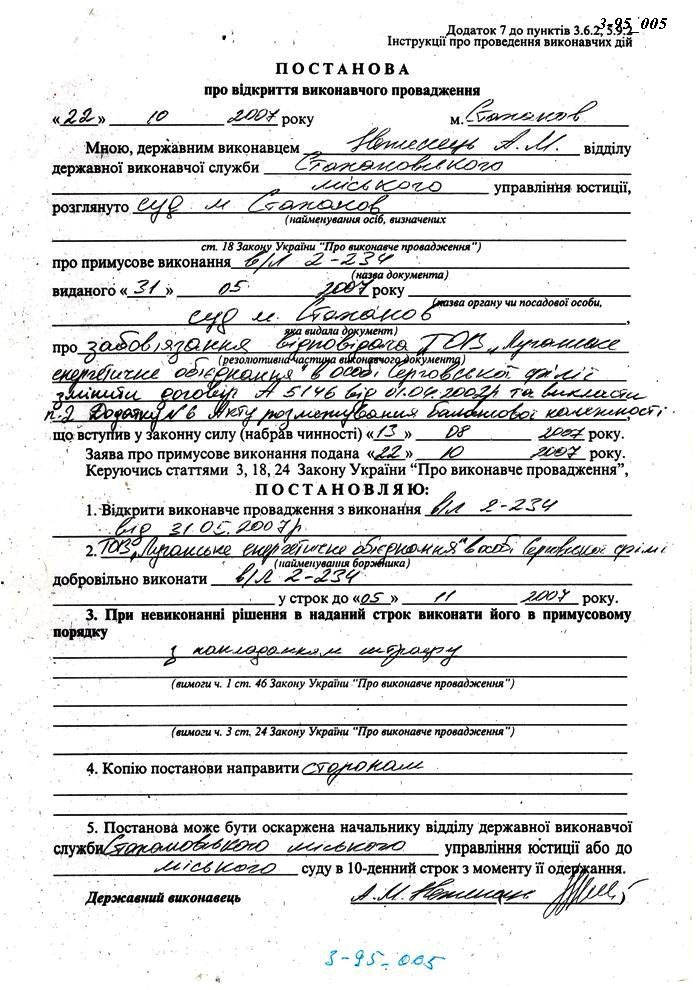 3-95_005
Додаток 7 до пунктів 3.6.2, 5.9.2
Інструкції про проведення виконавчих дій
ПОСТАНОВА
про відкриття виконавчого провадження
«22» 10 2007 року м. Стаханов
Мною, державним виконавцем А.М. відділу
державної виконавчої служби Стахановського
міського управління юстиції,
розглянуто суд м Стаханов
(найменування осіб, визначених
ст. 18 Закону України "Про виконавче провадження")
про примусове виконання в/л 2-234
(назва документа)
виданого «31» 05 2007 року
(назва органу чи посадової особи,
суд м. Стаханов,
яка видала документ)
про забов'язання відповідача ТОВ „Луганське
(резолютивна частина виконавчого документа)
енергетичне обєднання" в особі філії
змінити договір А 5146 від 01.04.2002р та викласти
п.2 Додатку №6 Акту розмежування балансової належності
що вступив у законну силу (набрав чинності) «13» 08 2007 року.
Заява про примусове виконання подана «22» 10 2007 року.
Керуючись статтями 3, 18, 24 Закону України “Про виконавче провадження”,
ПОСТАНОВЛЯЮ:
1. Відкрити виконавче провадження з виконання в/л 2-234
від 31.05.2007р.
2. ТОВ „Луганське енергетичне обєднання" в особі філії
(найменування боржника)
добровільно виконати в/л 2-234
у строк до «05» 11 2007 року.
3. При невиконанні рішення в наданий строк виконати його в примусовому
порядку
з накладанням штрафу
(вимоги ч. 1 ст. 46 Закону України "Про виконавче провадження")
(вимоги ч. 3 ст. 24 Закону України "Про виконавче провадження")
4. Копію постанови направити сторонам
5. Постанова може бути оскаржена начальнику відділу державної виконавчої
служби Стахановського міського управління юстиції або до
міського суду в 10-денний строк з моменту її одержання.
Державний виконавець А.М.
3-95_005